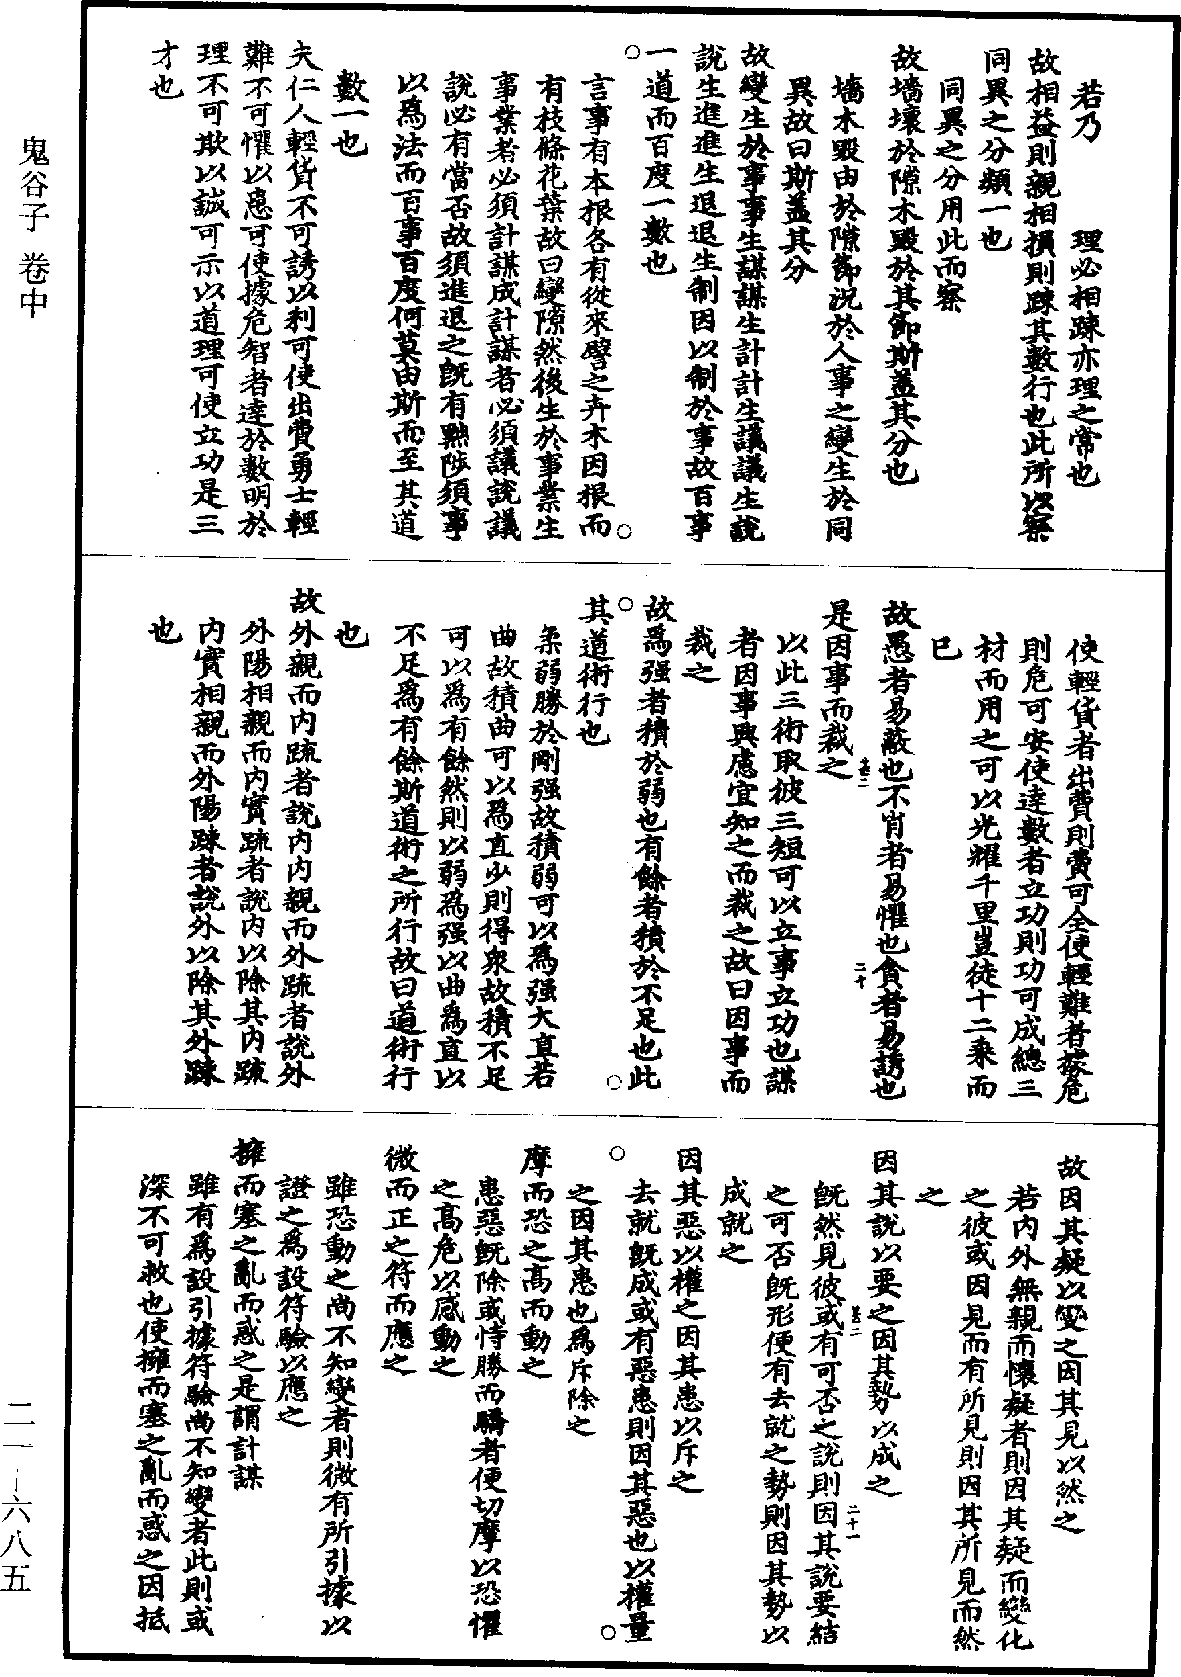 鬼谷子 卷中
二一—六八五
若乃　　理必相疎亦理之常也
故相益則親相損則疎其數行也此所以察
同異之分類一也
同異之分用此而察
故墻壞於隙木毀於其節斯蓋其分也
墻木毀由於隙節況於人事之變生於同
異故曰斯蓋其分
故變生於事事生謀謀生計計生議議生說
說生進進生退退生制因以制於事故百事
一道而百度一數也
言事有本根各有從來譬之卉木因根而
有枝條花葉故曰變隙然後生於事業生
事業者必須計謀成計謀者必須議說議
說必有當否故須進退之既有黜陟須事
以爲法而百事百度何莫由斯而至其道
數一也
夫仁人輕貨不可誘以利可使出費勇士輕
難不可懼以患可使據危智者達於數明於
理不可欺以誠可示以道理可使立功是三
才也
使輕貨者出費則費可全使輕難者據危
則危可安使達數者立功則功可成總三
材而用之可以光耀千里豈徒十二乘而
已
故愚者易蔽也不肖者易懼也貪者易誘也
是因事而裁之
以此三術取彼三短可以立事立功也謀
者因事興慮宜知之而裁之故曰因事而
裁之
故爲强者積於弱也有餘者積於不足也此
其道術行也
柔弱勝於剛强故積弱可以爲强大直若
曲故積曲可以爲直少則得衆故積不足
可以爲有餘然則以弱爲强以曲爲直以
不足爲有餘斯道術之所行故曰道術行
也
故外親而内疏者說内内親而外疏者說外
外陽相親而内實疏者說内以除其内疏
内實相親而外陽疎者說外以除其外疎
也
故因其疑以變之因其見以然之
若内外無親而懷疑者則因其疑而變化
之彼或因見而有所見則因其所見而然
之
因其說以要之因其勢以成之
既然見彼或有可否之說則因其說要結
之可否既形便有去就之勢則因其勢以
成就之
因其惡以權之因其患以斥之
去就既成或有惡患則因其惡也以權量
之因其患也爲斥除之
摩而恐之高而動之
患惡既除或恃勝而驕者便切摩以恐懼
之高危以感動之
微而正之符而應之
雖恐動之尚不知變者則微有所引據以
證之爲設符驗以應之
擁而塞之亂而惑之是謂計謀
雖有爲設引據符驗尚不知變者此則或
深不可救也使擁而塞之亂而惑之因抵